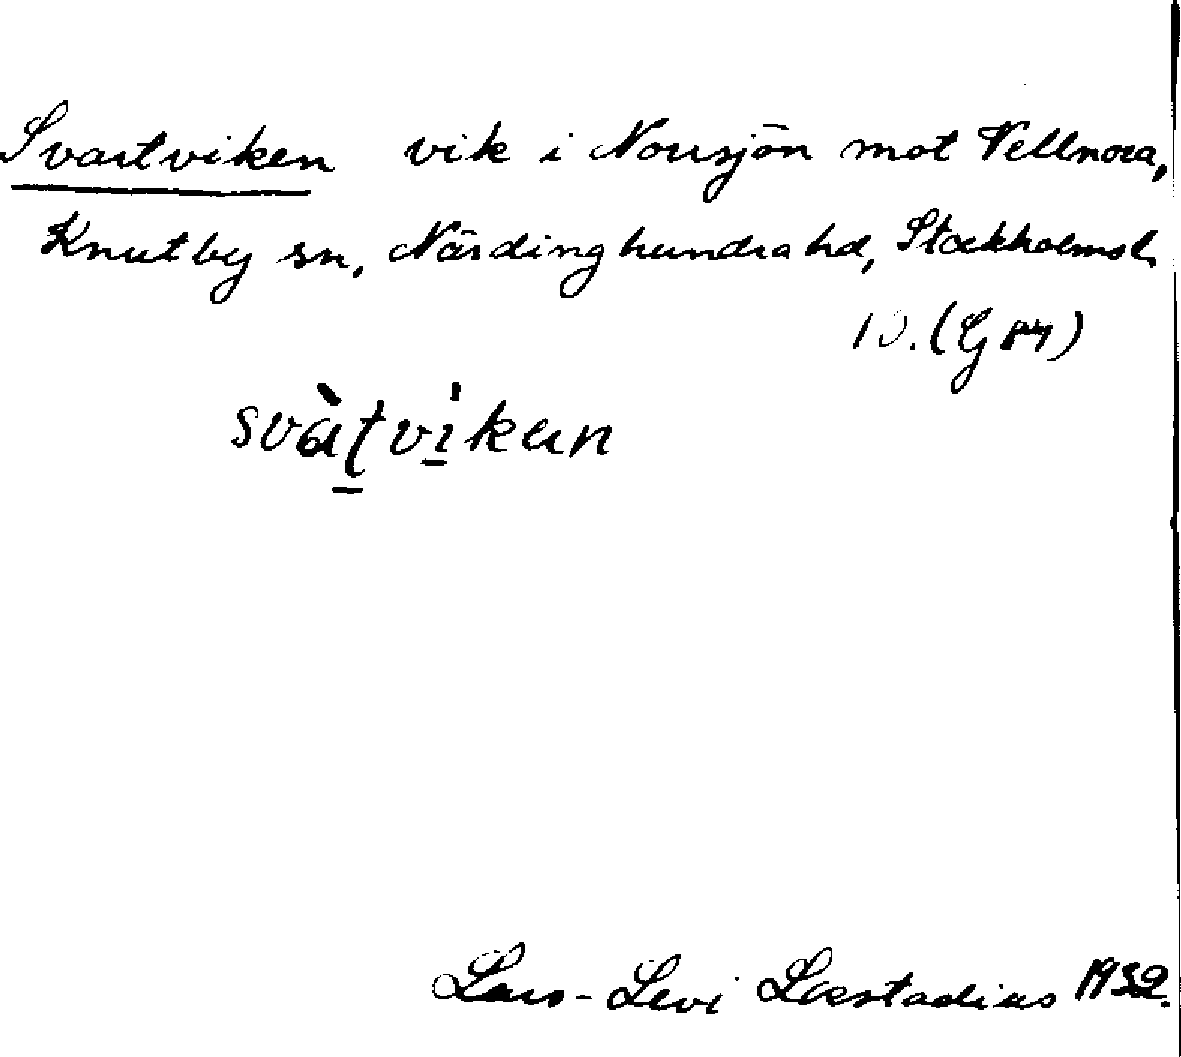 Svartviken vik i Norrsjön mot Vellnora,
Knutby sn, Närdinghundra hd, Stockholms l.
10. (G M)
svàtvikan
Lars-Levi Læstadius 1932.